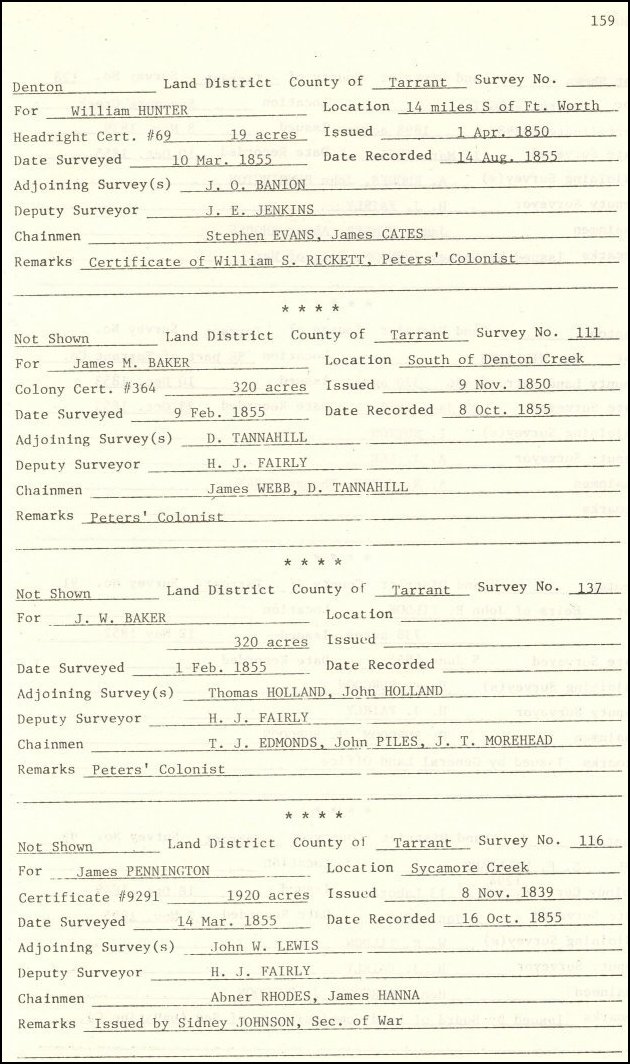 159
Denton Land District County of Tarrant Survey No.
For William HUNTER Location 14 miles S of Ft. Worth
Headright Cert. #69 19 acres Issued 1 Apr. 1850
Date Surveyed 10 Mar. 1855 Date Recorded 14 Aug. 1855
Adjoining Survey(s) J. O. BANION
Deputy Surveyor J. E. JENKINS
Chainmen Stephen EVANS, James CATES
Remarks Certificate of William S. RICKETT, Peters' Colonist
* * * *
Not Shown Land District County of Tarrant Survey No. 111
For James M. BAKER Location South of Denton Creek
Colony Cert. #364 320 acres Issued 9 Nov. 1850
Date Surveyed 9 Feb. 1855 Date Recorded 8 Oct. 1855
Adjoining Survey(s) D. TANNAHILL
Deputy Surveyor H. J. FAIRLY
Chainmen James WEBB, D. TANNAHILL
Remarks Peters' Colonist
* * * *
Not Shown Land District County of Tarrant Survey No. 137
For J. W. BAKER Location
320 acres Issued
Date Surveyed 1 Feb. 1855 Date Recorded
Adjoining Survey(s) Thomas HOLLAND, John HOLLAND
Deputy Surveyor H. J. FAIRLY
Chainmen T. J. EDMONDS, John PILES, J. T. MOREHEAD
Remarks Peters' Colonist
* * * *
Not Shown Land District County of Tarrant Survey No. 116
For James PENNINGTON Location Sycamore Creek
Certificate #9291 1920 acres Issued 8 Nov. 1839
Date Surveyed 14 Mar. 1855 Date Recorded 16 Oct. 1855
Adjoining Survey(s) John W. LEWIS
Deputy Surveyor H. J. FAIRLY
Chainmen Abner RHODES, James HANNA
Remarks Issued by Sidney JOHNSON, Sec. of War